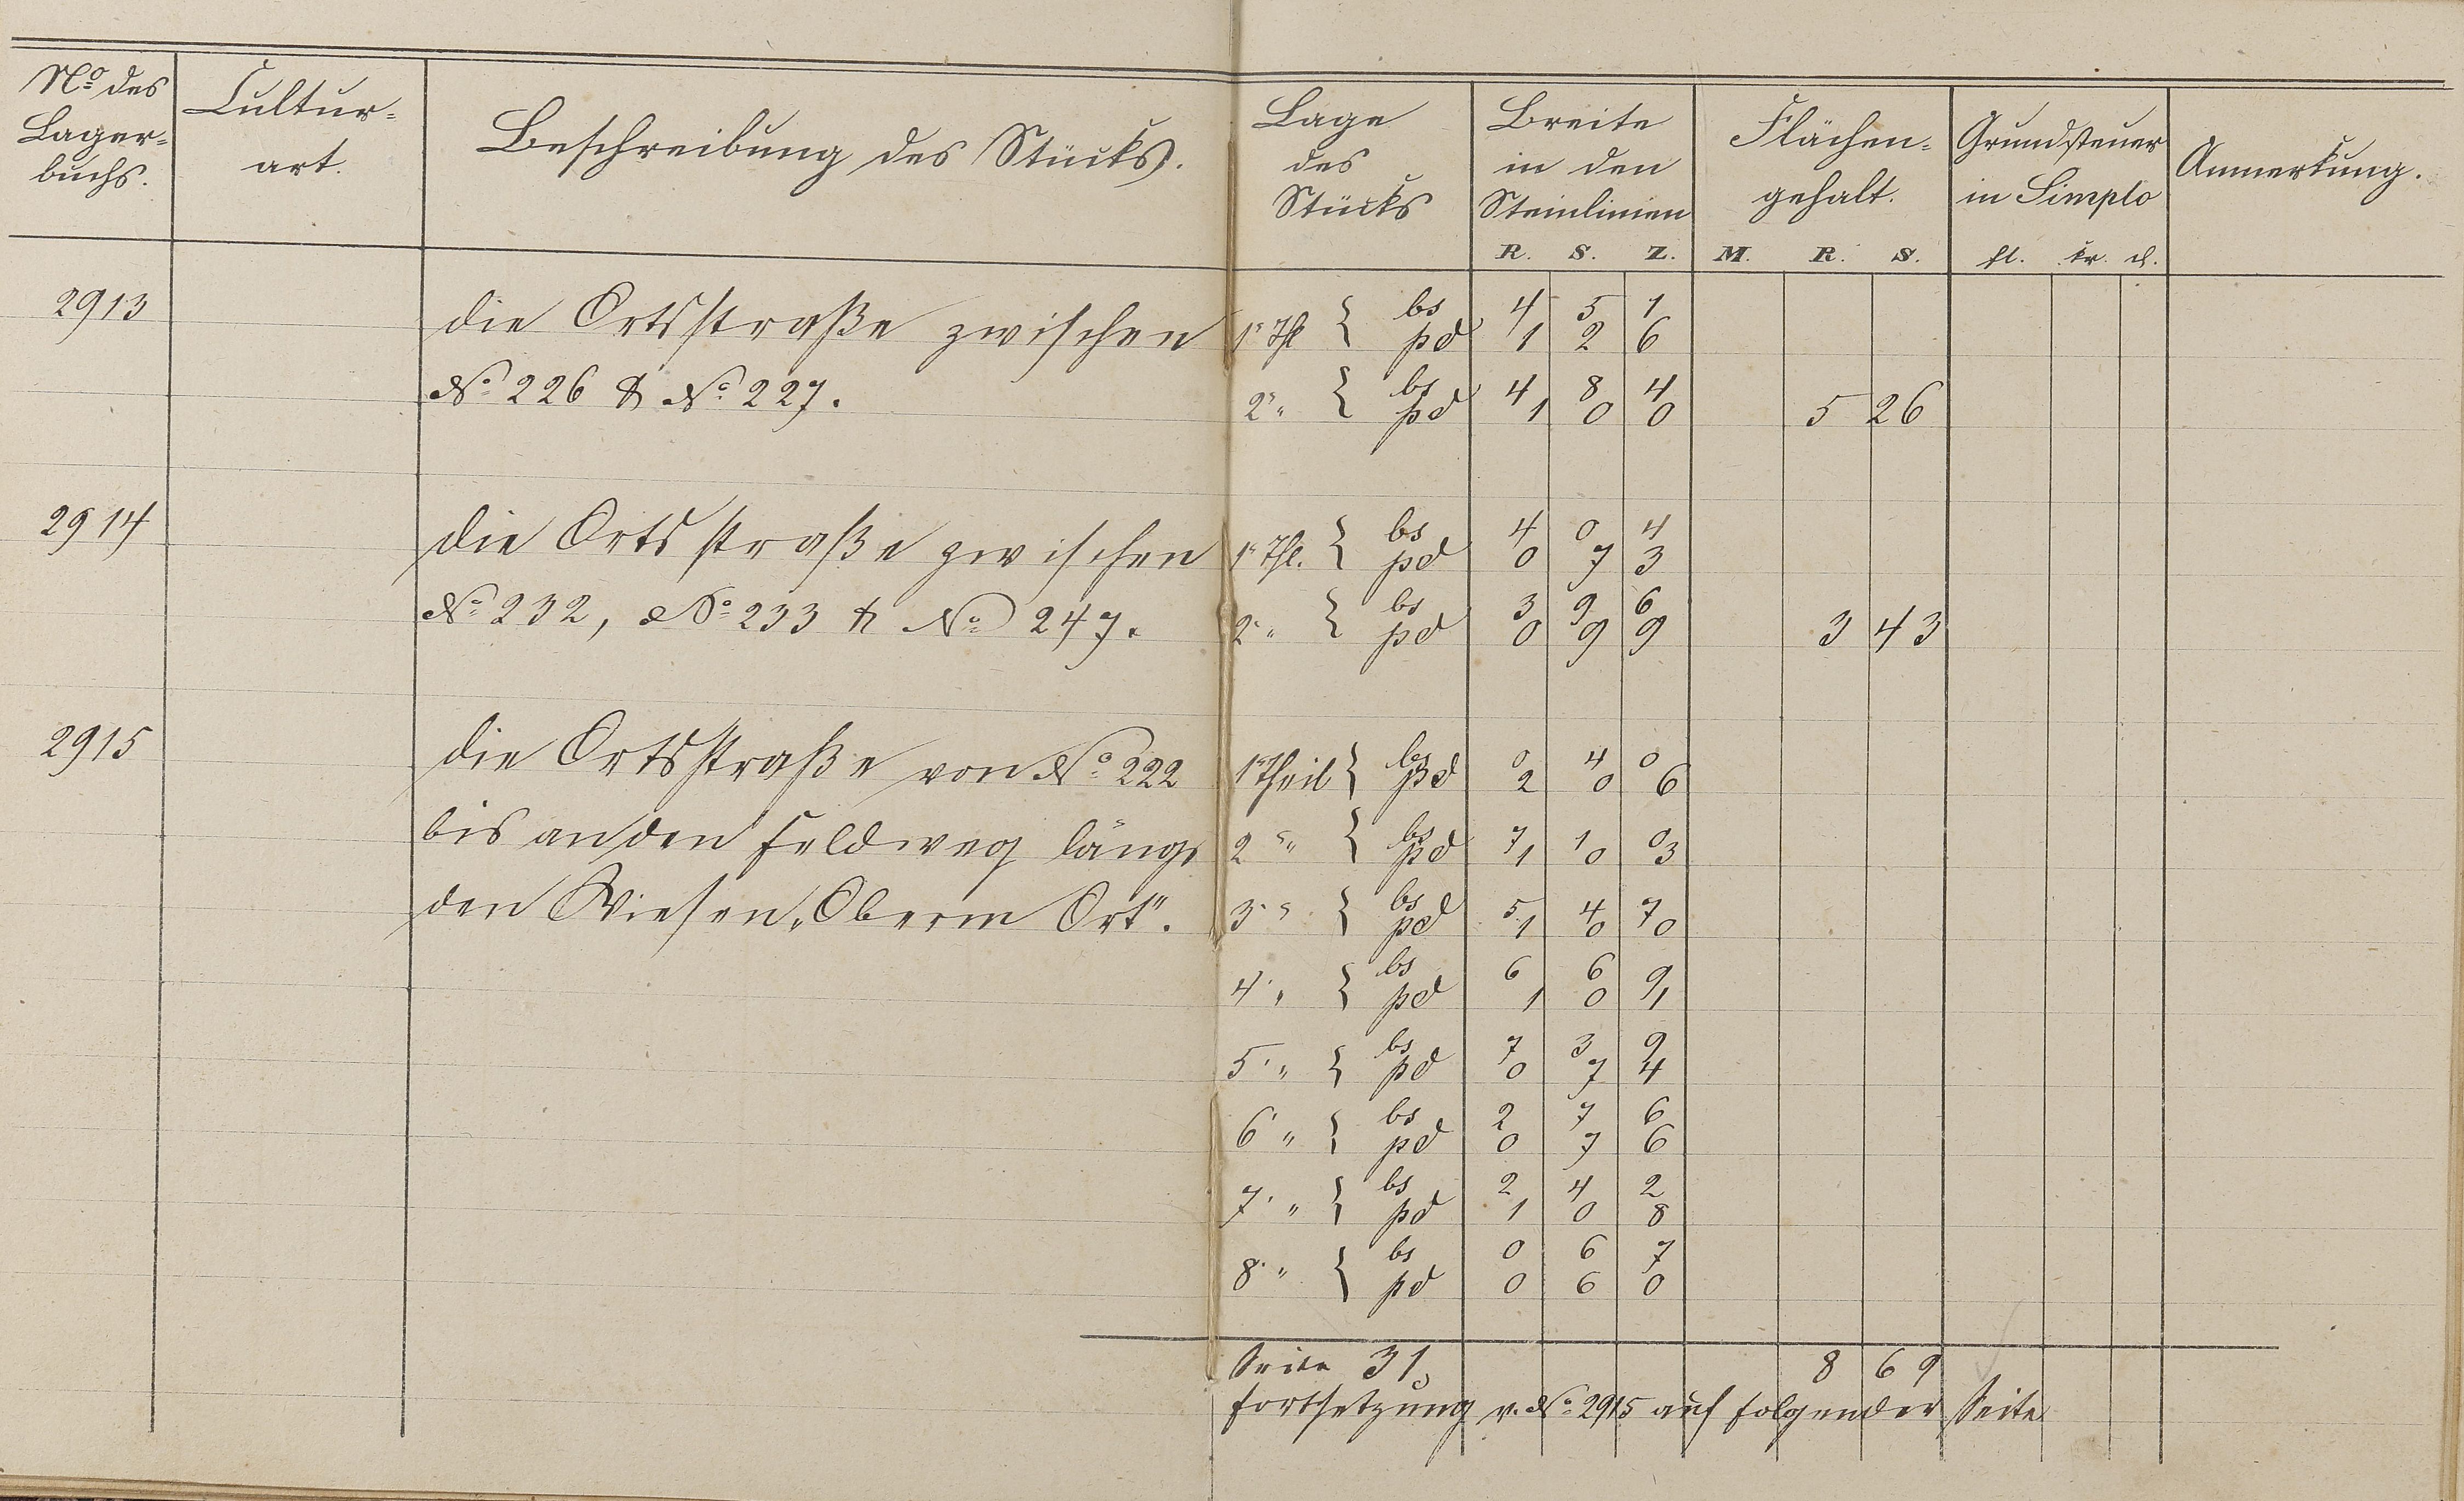 No des Lager= buchs.
Cultur= art.
Beschreibung des Stücks.
Lage des Stücks
Breite in den Steinlinien
R. S. Z.
Flächen= gehalt.
M. R. S.
Grundsteuer in Simplo
fl. kr. d.
Anmerkung.
2913 die Ortsstraße zwischen 1r Thl { bs 4 5 1
pd 1 2 6
No 226 & No 227. 2r " { bs 4 8 4
pd 1 0 0 5 26
2914 die Ortsstraße zwischen 1r Thl. { bs 4 0 4
pd 0 7 3
No 232, No 233 & No 247. 2r " { bs 3 9 6
pd 0 9 9 3 43
2915 die Ortsstraße von No 222 1r Theil { bs 0 4 0
pd 2 0 6
bis an den Feldweg längs 2r " { bs 7 1 0
pd 1 0 3
den Wiesen „Oberm Ort". 3r " { bs 5 4 7
pd 1 0 0
4r " { bs 6 6 9
pd 1 0 1
5r " { bs 7 3 9
pd 0 7 4
6r " { bs 2 7 6
pd 0 7 6
7r " { bs 2 4 2
pd 1 0 8
8r " { bs 0 6 7
pd 0 6 0
Seite 31 8 69
Fortsetzung v. No 2915 auf folgender Seite